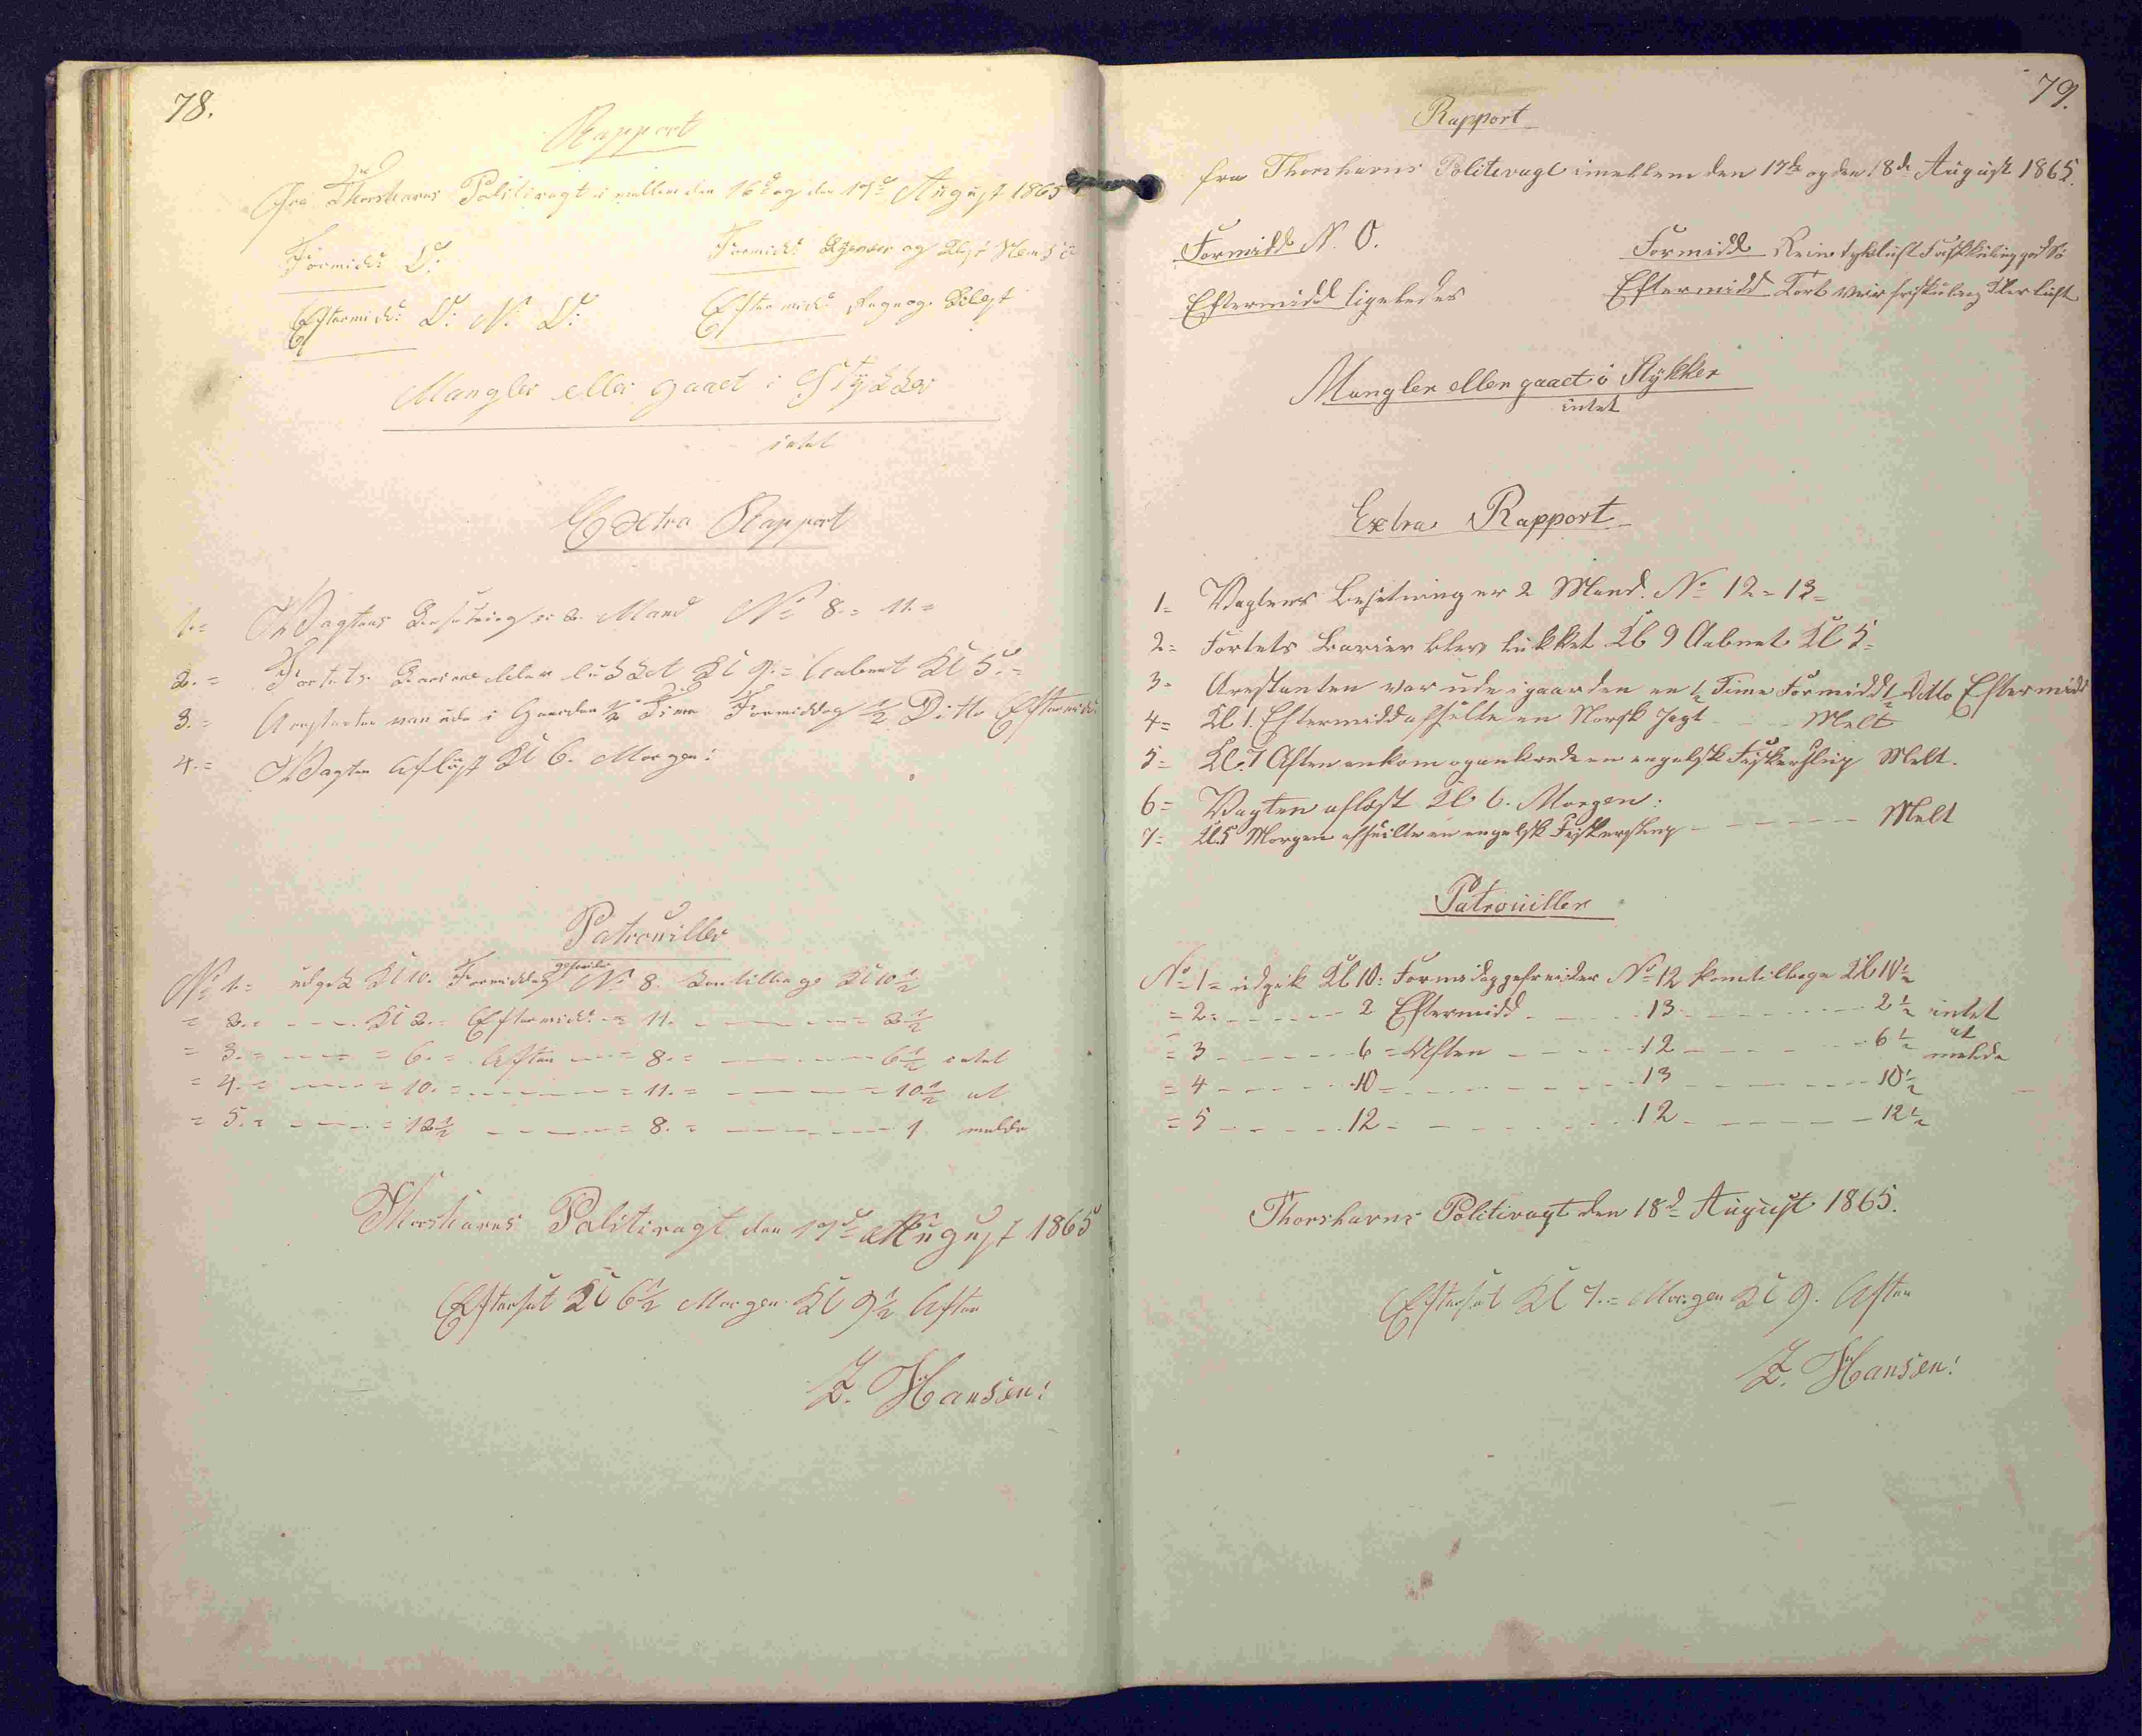 78.
Rapport
Fra Thorshavns Politivagt imellem den 16de og den 17de August 1865
Formidd: O:
Formidd:
Eftermidd: O: N: O:
Eftermidd: Regn og Blæst
Mangler eller gaaet i Stykker
intet
Extra Rapport
1.= Vagtens Besætning er 2. Mand No 8.= 11.=
2.= Fortets Bariere blev lukket Kl 9.= Aabnet Kl 5.=
3.= Arestanten var ude i Gaarden 1/2 Time Formiddag 1/2 Ditto Eftermidd:
4.= Vagten Afløst Kl 6. Morgen:
Patrouiller
No 1.= udgik Kl 10. Formiddag gefreider No 8. kom tilbage Kl 10 1/2
= 2.= - - - Kl 2.= Eftermidd: = 11. - - - 2 1/2
= 3.= - - - = 6.= Aften - - = 8.= - - - 6 1/2 intet
= 4.= - - - = 10.= - - - = 11.= - - - = 10 1/2 at
= 5.= - - - = 12 1/2 - - - = 8.= - - - 1 melde
Thorshavns Politivagt den 17de August 1865
Efterset Kl 6 1/2 Morgen Kl 9 1/2 Aften
Z. Hansen:
79.
Rapport
fra Thorshavns Politivagt imellem den 17de og den 18de August 1865.
Formidd N. O.
Formidd
Eftermidd ligeledes
Eftermidd Tort Veir friskuling Klar luft
Mangler eller gaaet i Stykker
intet
Extra Rapport
1= Vagtens Besetning er 2 Mand. No 12 = 13=
2= Fortets Barier blev lukket Kl 9 Aabnet Kl 5=
3= Arestanten var ude i gaarden en 1/2 Time Formidd 1/2 Ditto Eftermidd
4= Kl 1. Eftermidd afseilte en Norsk Jagt - - - Melt
5= Kl. 7 Aften ankom og ankrede en engelsk Fiskerslup Melt.
6= Vagten afløst Kl 6. Morgen:
7= Kl. 5 Morgen afseilte en engelsk Fiskerslup - - - Melt
Patrouiller
No 1= udgik Kl 10: Formidag gefreider No 12 kom tilbage Kl 10 1/2
= 2= - - - 2 Eftermidd - - - 13 - - - 2 1/2 intet
= 3 - - - 6 = Aften - - - 12 - - - 6 1/2 at melde
= 4 - - - 10 - - - 13 - - - 10 1/2
= 5 - - - 12 - - - 12 - - - 12 1/2
Thorshavns Politivagt den 18d August 1865.
Efterset Kl 7.= Morgen Kl 9. Aften
Z. Hansen: